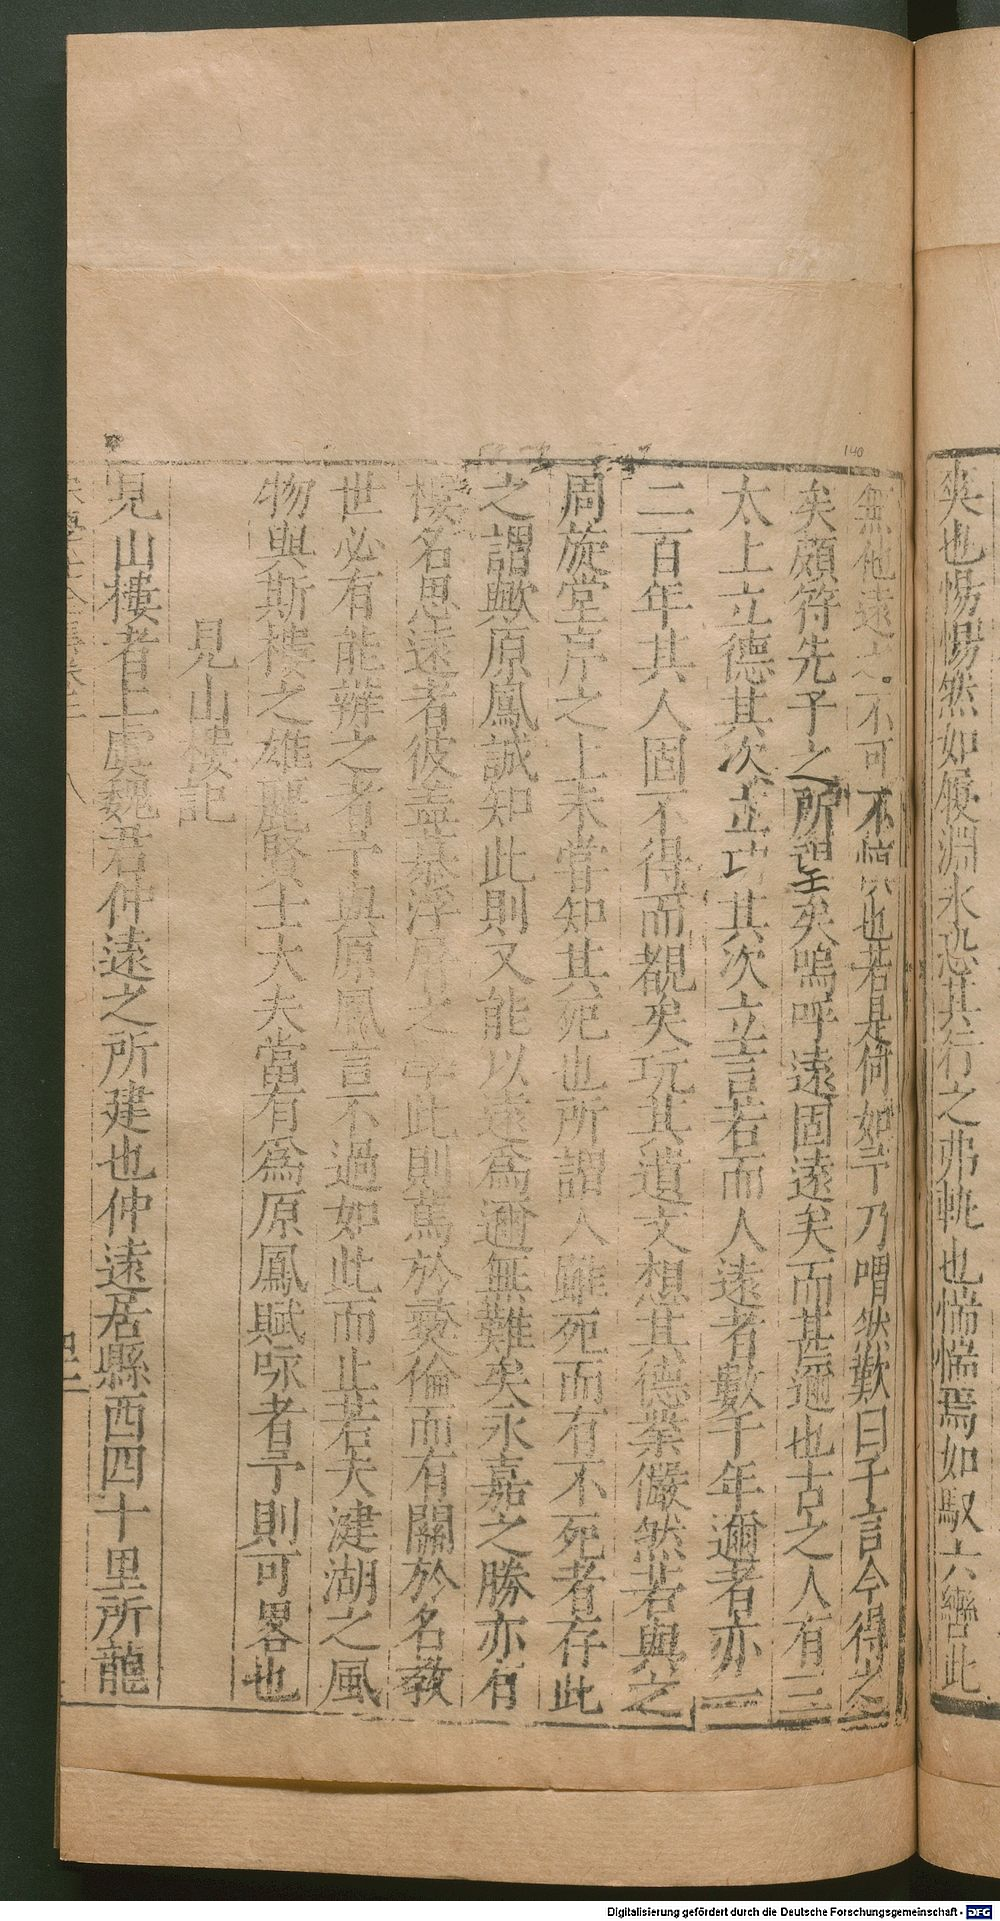 爽也惕惕然如履淵氷恐其行之弗軌也惴惴焉如馭六轡此
140
無他遠之不可不慎也若是何如予乃喟然歎曰子言今得之
矣頗符先予之所望矣嗚呼遠固遠矣而甚邇也古之人有三
太上立德其次立功其次立言若而人遠者數千年邇者亦一
二百年其人固不得而覩矣玩其遺文想其德業儼然若與之
周旋堂戶之上未嘗知其死也所謂人雖死而有不死者存此
之謂歟原鳳誠知此則又能以遠爲邇無難矣永嘉之勝亦有
樓名思遠者彼盖慕浮屠之學此則篤於彝倫而有關於名教
世必有能辨之者予與原鳳言不過如此而止若夫湕湖之風
物與斯樓之雄麗賢士大夫當有爲原鳳賦咏者予則可畧也
見山樓記
見山樓者上虞魏君仲遠之所建也仲遠居縣西四十里所龍
Digitalisierung gefördert durch die Deutsche Forschungsgemeinschaft - DFG